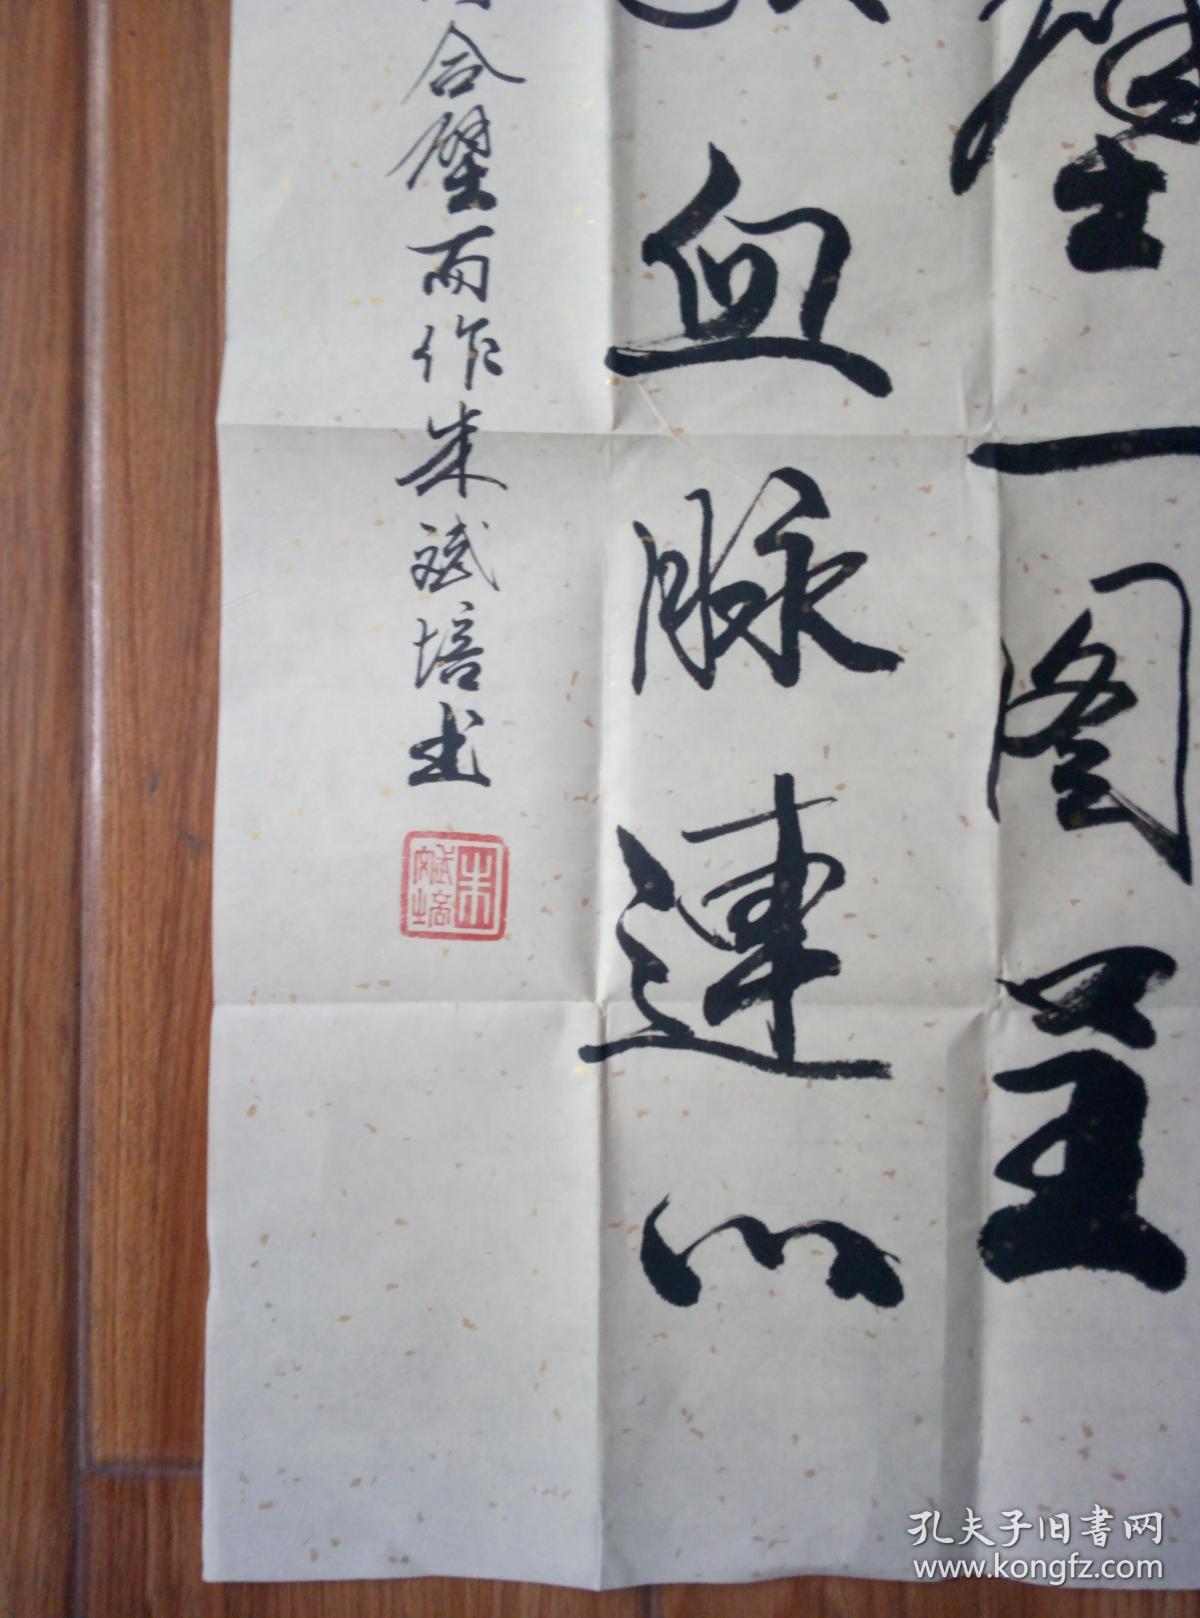 璧一图呈
血脉連心
合璧而作朱斌培书
朱斌培
孔夫子旧书网
www.kongfz.com